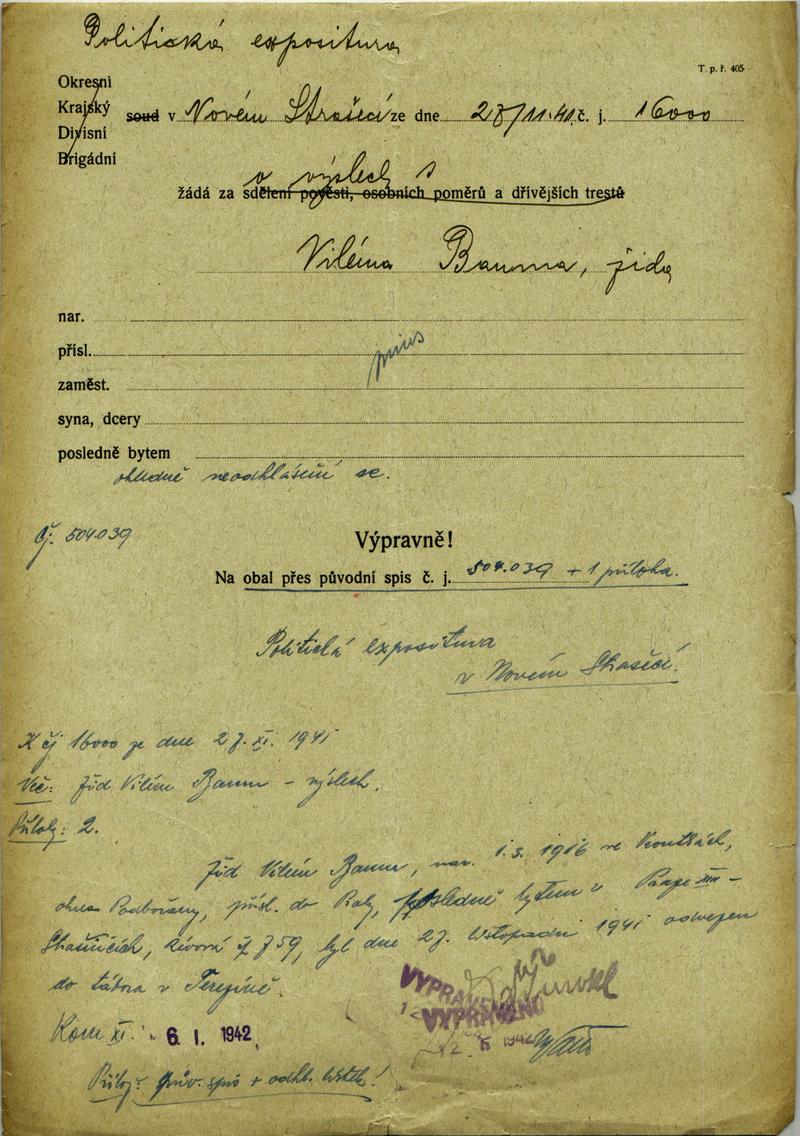 Politická expositura
T. p. ř. 405
Okresní
Krajský
Divisní
Brigádní
soud v Novém Strašecí ze dne 27/11.41 č. j. 16000
o výslech s
žádá za sdělení pověsti, osobních poměrů a dřívějších trestů
Viléma Bauma, žida
nar.
přísl.
zaměst.
syna, dcery
posledně bytem
ohledně neodhlášení se.
Čj. 504.039
Výpravně!
Na obal přes původní spis č. j. 504.039 + 1 příloha.
Politická expositura
v Novém Strašecí.
K čj 16000 ze dne 27. XI. 1941
Věc: Žid Vilém Baum – výslech.
Příloh: 2.
Žid Vilém Baum, nar. 1.3. 1916 ve
okres Podbořany, přísl. do posledně bytem v Praze XIII –
Strašnicích, čp 759, byl dne 27. listopadu 1941 odvezen
do tábora v Terezíně.
Kom XI. 6. I. 1942
VYPRAVENO
VYPRAVENO
1942
Příloh: pův. spis + odhl. lístek!